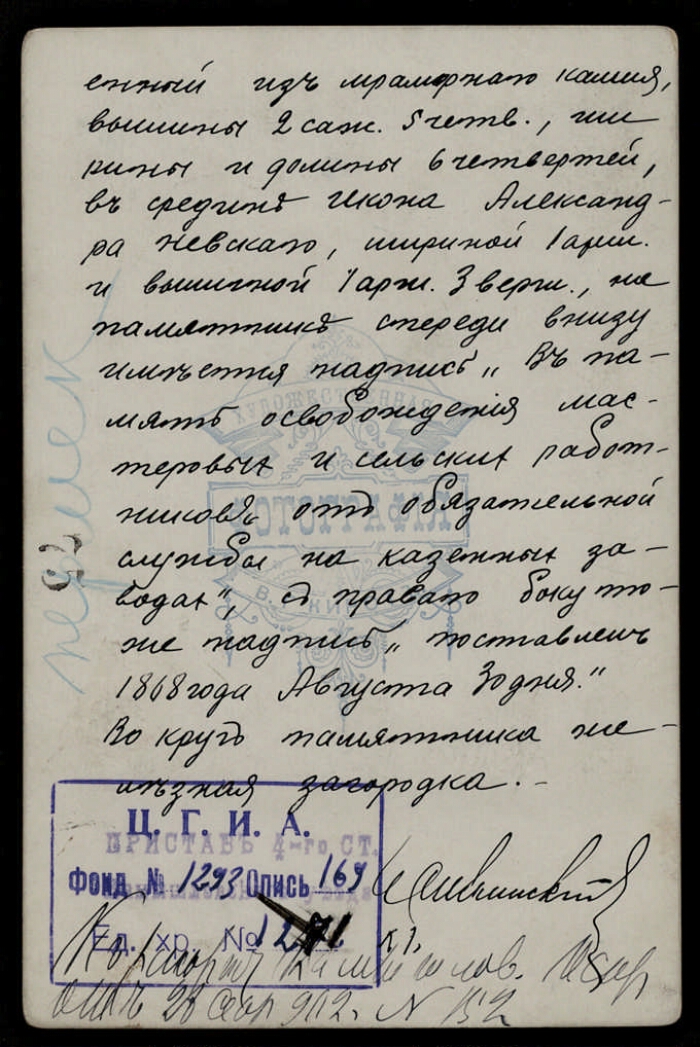 енный изъ мраморнаго камня,
вышины 2 саж. 5 четв., ши
рины и долины 6 четвертей,
въ срединѣ Икона Александ-
ра Невскаго, шириной 1 арш.
и вышиной 1 арш. 3 верш., на
памятникѣ спереди внизу
имѣется надпись „Въ па-
мять освобожденія мас-
теровых и сельских работ-
никовъ отъ обязательной
службы на казенных за-
водах", съ праваго боку то-
же надпись „поставленъ
1868 года Августа 30 дня."
Во кругъ памятника же-
лѣзная загородка. -
ХУДОЖЕСТВЕННАЯ
ФОТОГРАФІЯ
Ц. Г. И. А.
ПРИСТАВЪ 4-го СТ.
Фонд № 1293 Опись 169
Ед. хр. № 1271
К рапорту
28 912. N 152